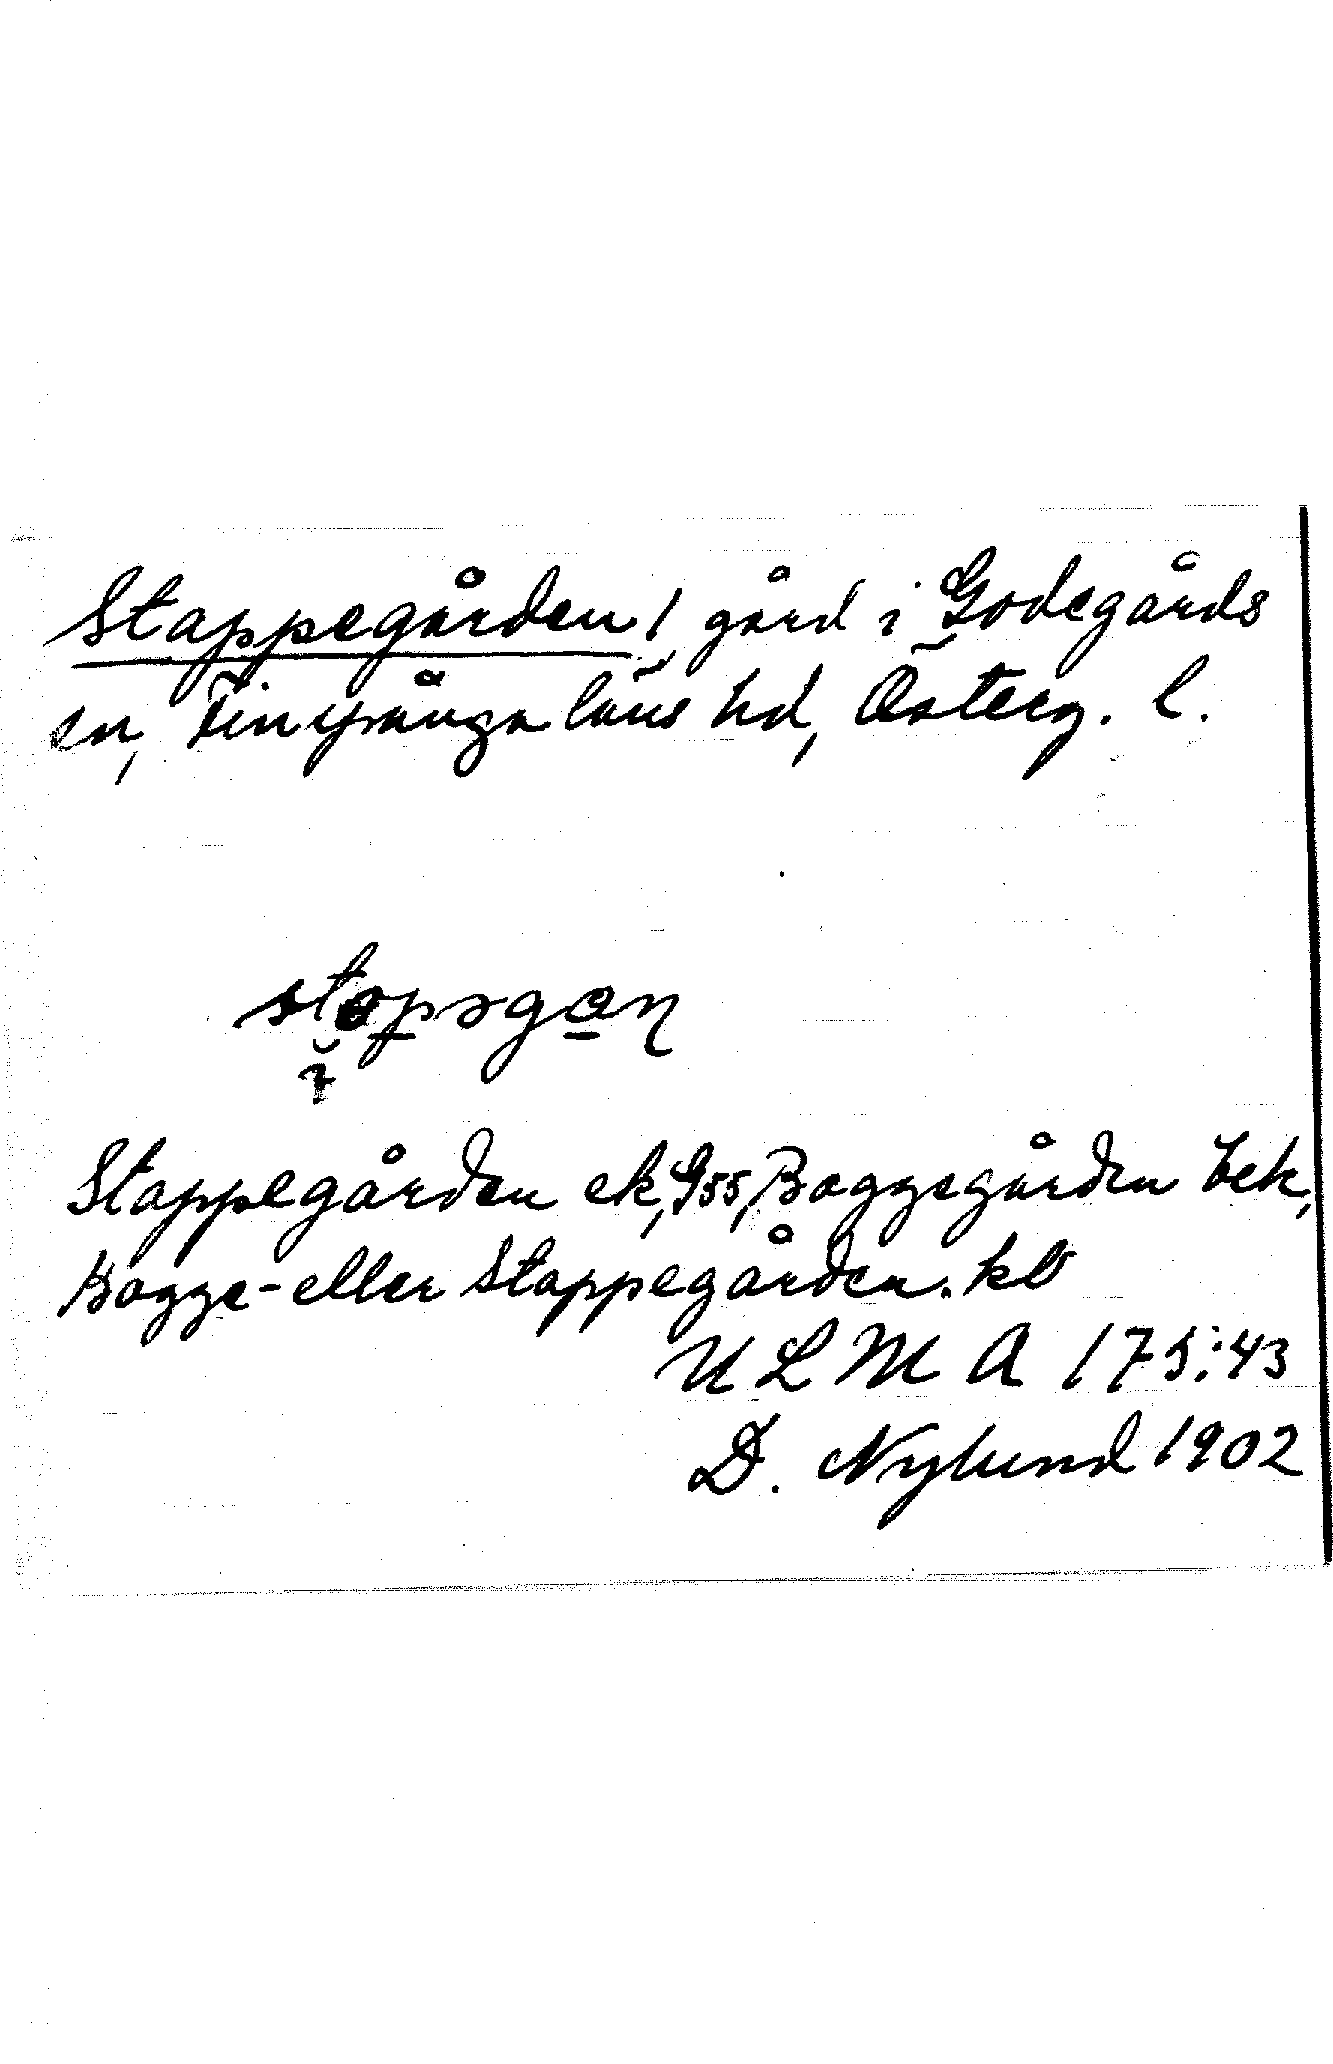 Stappegården, gård i Godegårds
sn, Finspånga läns hd, Österg. l.
Stappegården ek, G55, Baggegården bek,
Bagge- eller Stappegården. kb
ULMA 175:43
D. Nylund 1902